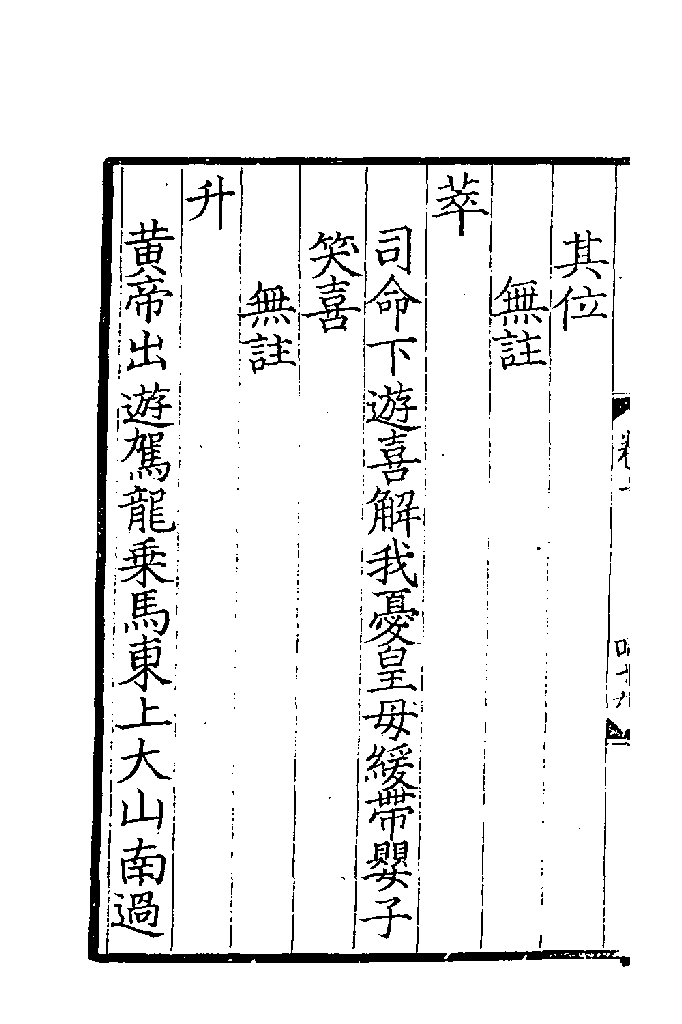 其位
無註
萃
司命下遊喜解我憂皇母緩帶嬰子
笑喜
無註
升
黃帝出遊駕龍乘馬東上大山南過